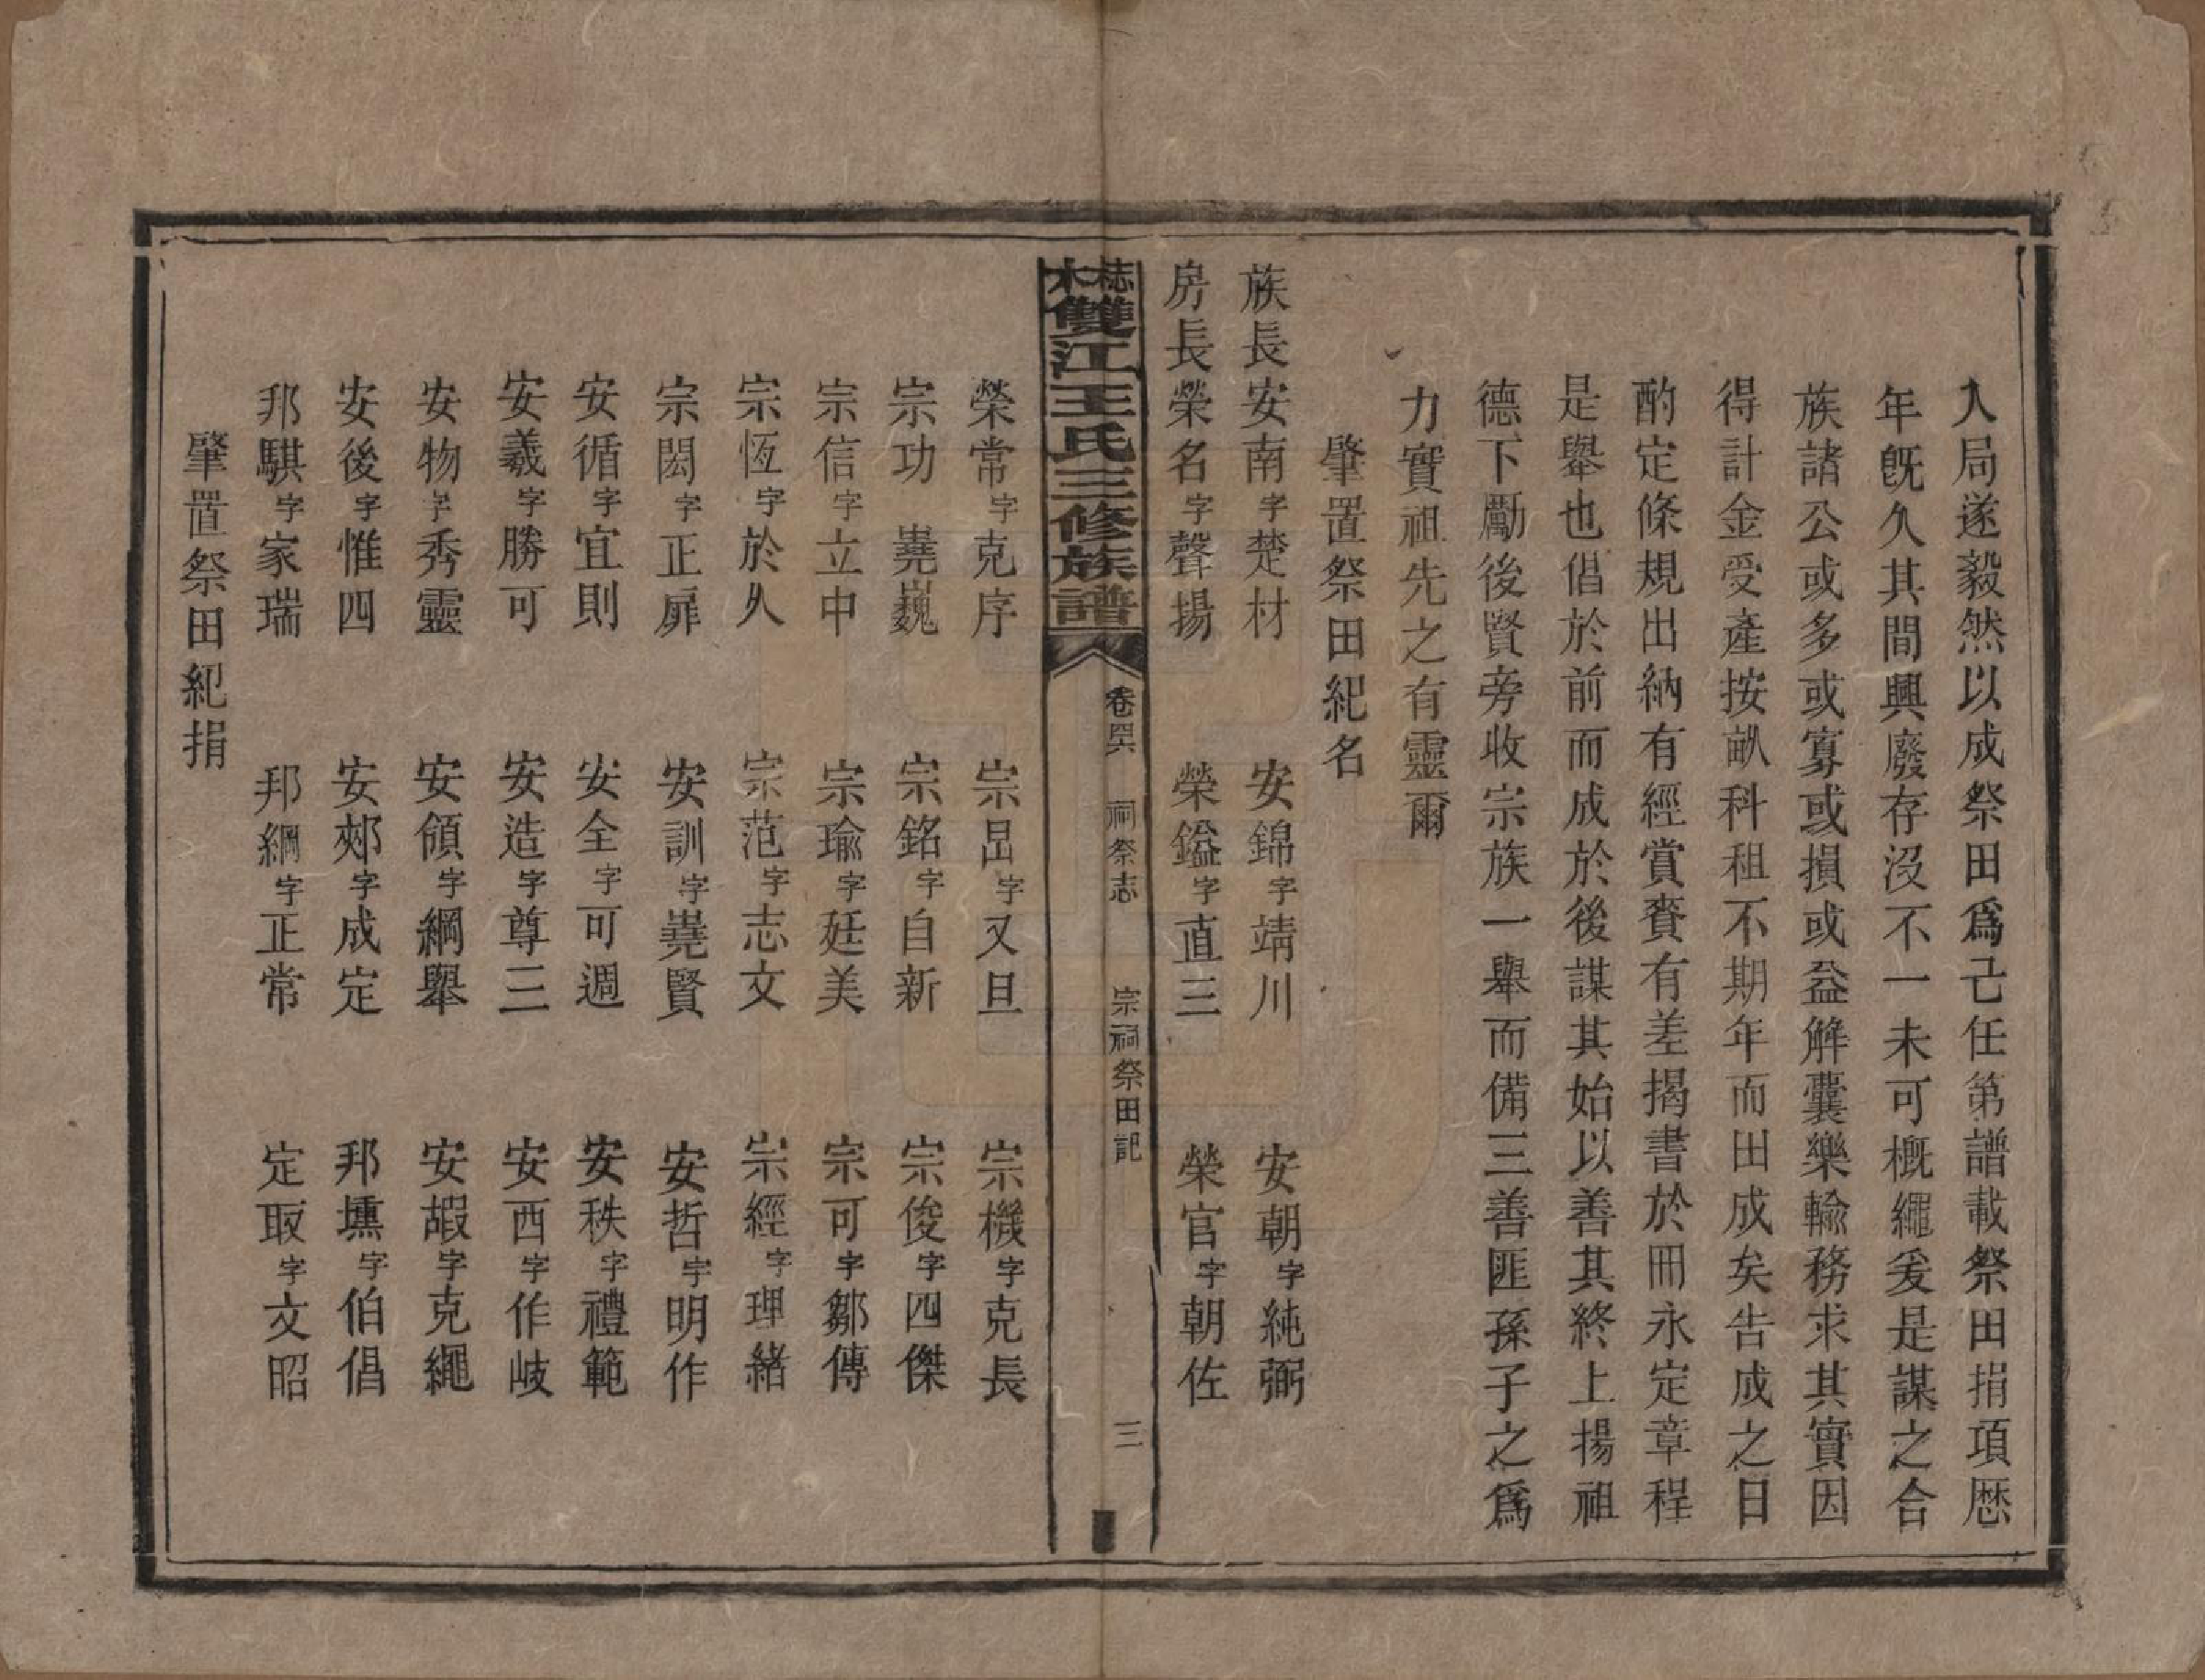 入局遂毅然以成祭田爲己任第譜載祭田捐項歷
年既久其間興廢存沒不一未可概繩爰是謀之合
族諸公或多或寡或損或益解囊樂輸務求其實因
得計金受產按畝科租不期年而田成矣告成之日
酌定條規出納有經賞賚有差揭書於冊永定章程
是舉也倡於前而成於後謀其始以善其終上揚祖
德下勵後賢旁收宗族一舉而備三善匪孫子之爲
力實祖先之有靈爾
肇置祭田紀名
族長安南字楚材 安錦字靖川 安朝字純弼
房長榮名字聲揚 榮鎰字直三 榮官字朝佐
志木雙江王氏三修族譜 卷四六 祠祭志 宗祠祭田記 三
榮常字克序 宗昌字又旦 宗機字克長
宗功 堯巍 宗銘字自新 宗俊字四傑
宗信字立中 宗瑜字廷美 宗可字鄒傳
宗恆字於久 宗范字志文 宗經字理緒
宗閎字正扉 安訓字堯賢 安哲字明作
安循字宜則 安全字可週 安秩字禮範
安義字勝可 安造字尊三 安西字作岐
安物字秀靈 安領字綱舉 安嘏字克繩
安後字惟四 安郟字成定 邦壎字伯倡
邦騏字家瑞 邦綱字正常 定取字文昭
肇置祭田紀捐